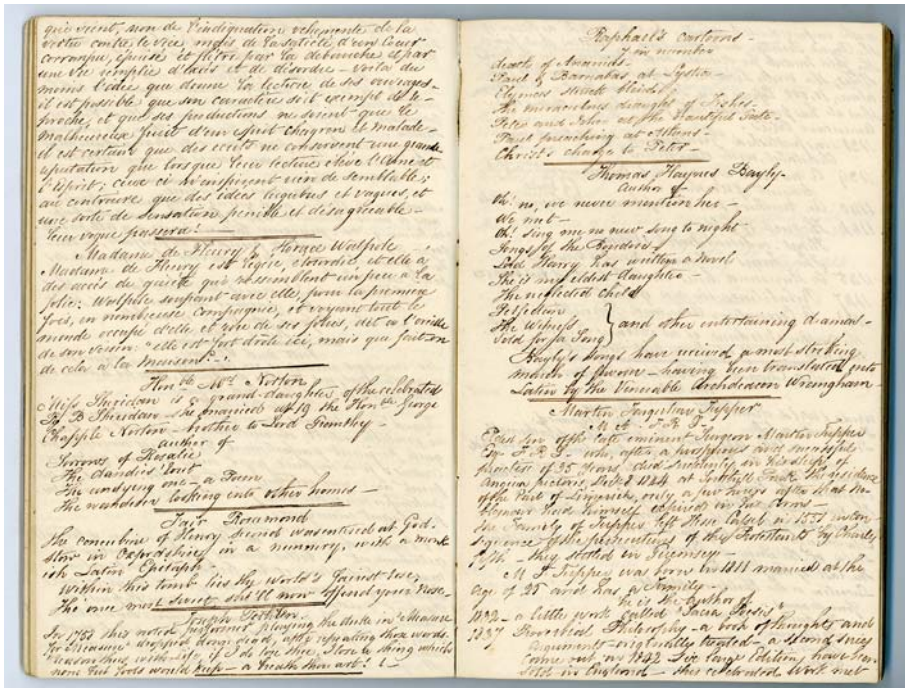 qui vient, non de l'indignation vehemente de la
vertu contre le vice, mais de la satiété d'un Coeur
corrompu, épuisé et flétri par la debauche et par
une vie remplie d'excès et de désordre – voilà du
moins l'idée que donne la lecture de ses ouvrages –
il est possible que son caractère soit exempt de re-
proche, et que ses productions ne soient que le
malheureux fruit d'un esprit chagrin et malade –
il est certain que des écrits ne conservent une grande
reputation que lorsque leur lecture élève l'Ame et
l'Esprit; ceux ci n'inspirent rien de semblable;
au contraire que des idées lugubres et vagues, et
une sorte de sensation penible et désagreable –
leur vogue passera!
Madame de Fleury & Horace Walpole
Madame de Fleury est légère, étourdie, et elle a
des accès de gaieté qui ressemblent un peu à la
folie: Walpole soupant avec elle, pour la premiere
fois, en nombreuse compagnie, et voyant tout le
monde occupé d'elle et rire de ses folies, dit à l'oreille
de son voisin: "elle est fort drôle ici, mais que fait-on
de cela à la maison?"
Honble Mrs Norton
Miss Sheridan is a grand-daughter of the celebrated
R B Sheridan – she married at 19 the Honble George
Chapple Norton – brother to Lord Grantley –
author of
Sorrows of Rosalie
The dandies' rout
The undying one – a Poem
The wanderer looking into other homes –
Fair Rosamond
The concubine of Henry second was entired at God-
stow in Oxfordshire, in a nunnery, with a monk
ish Latin Epitaph –
Within this tomb lies thy world's fairest rose,
The once most sweet, she'll now offend your nose –
Joseph
In 1758 this noted playing the duke in "Measure
for Measure" dropped down dead, after repeating these words.
"Reason thus, with life, if I do lose thee, I lose a thing which
none but fools would keep – a breath thou art!
Raphael's cartoons –
7 in number
death of Ananias –
Paul & Barnabas at Lystra –
Elymas struck blind –
The miraculous draught of Fishes –
Peter and John at the Beautiful Gate –
Paul preaching at Athens –
Christ's charge to Peter –
Thomas Haynes Bayly –
Author of
Oh! no, we never mention her –
We met –
Oh! sing me no new song to night
Songs of the Boudoir –
Lord Harry has written a novel
She is my eldest daughter –
The neglected child
Perfection
The Witness } and other entertaining dramas –
Sold for a Song
Bayly's Songs have recived a most striking
mark of favor – having been translated into
Latin by the Venerable Archdeacon Wrangham –
Martin Farquhar Tupper
M A F R S
Eldest son of the late eminent Surgeon Martin Tupper
Esq F.R.S. – who, after a prosperous and successful
practice of 35 Years died suddenly in his sleep of
Angina pectoris, Decr 8 1844 at Southill Park, the residence
of the Earl of Limerick, only a few hours after that No-
bleman had himself expired in his arms –
The Family of Tupper left Hesse Cassel in 1551 in con-
sequence of the persecutions of the Protestants by Charles
Fifth – they settled in Guernsey –
M F Tupper was born in 1811 married at the
age of 25 and has a Family –
he is Author of
1832 – a little work called "Sacra Poesis"
1837 Proverbial Philosophy – a book of thoughts and
Arguments – originally treated – a second series
came out in 1842 Six large Editions have been
sold in England – this celebrated work met